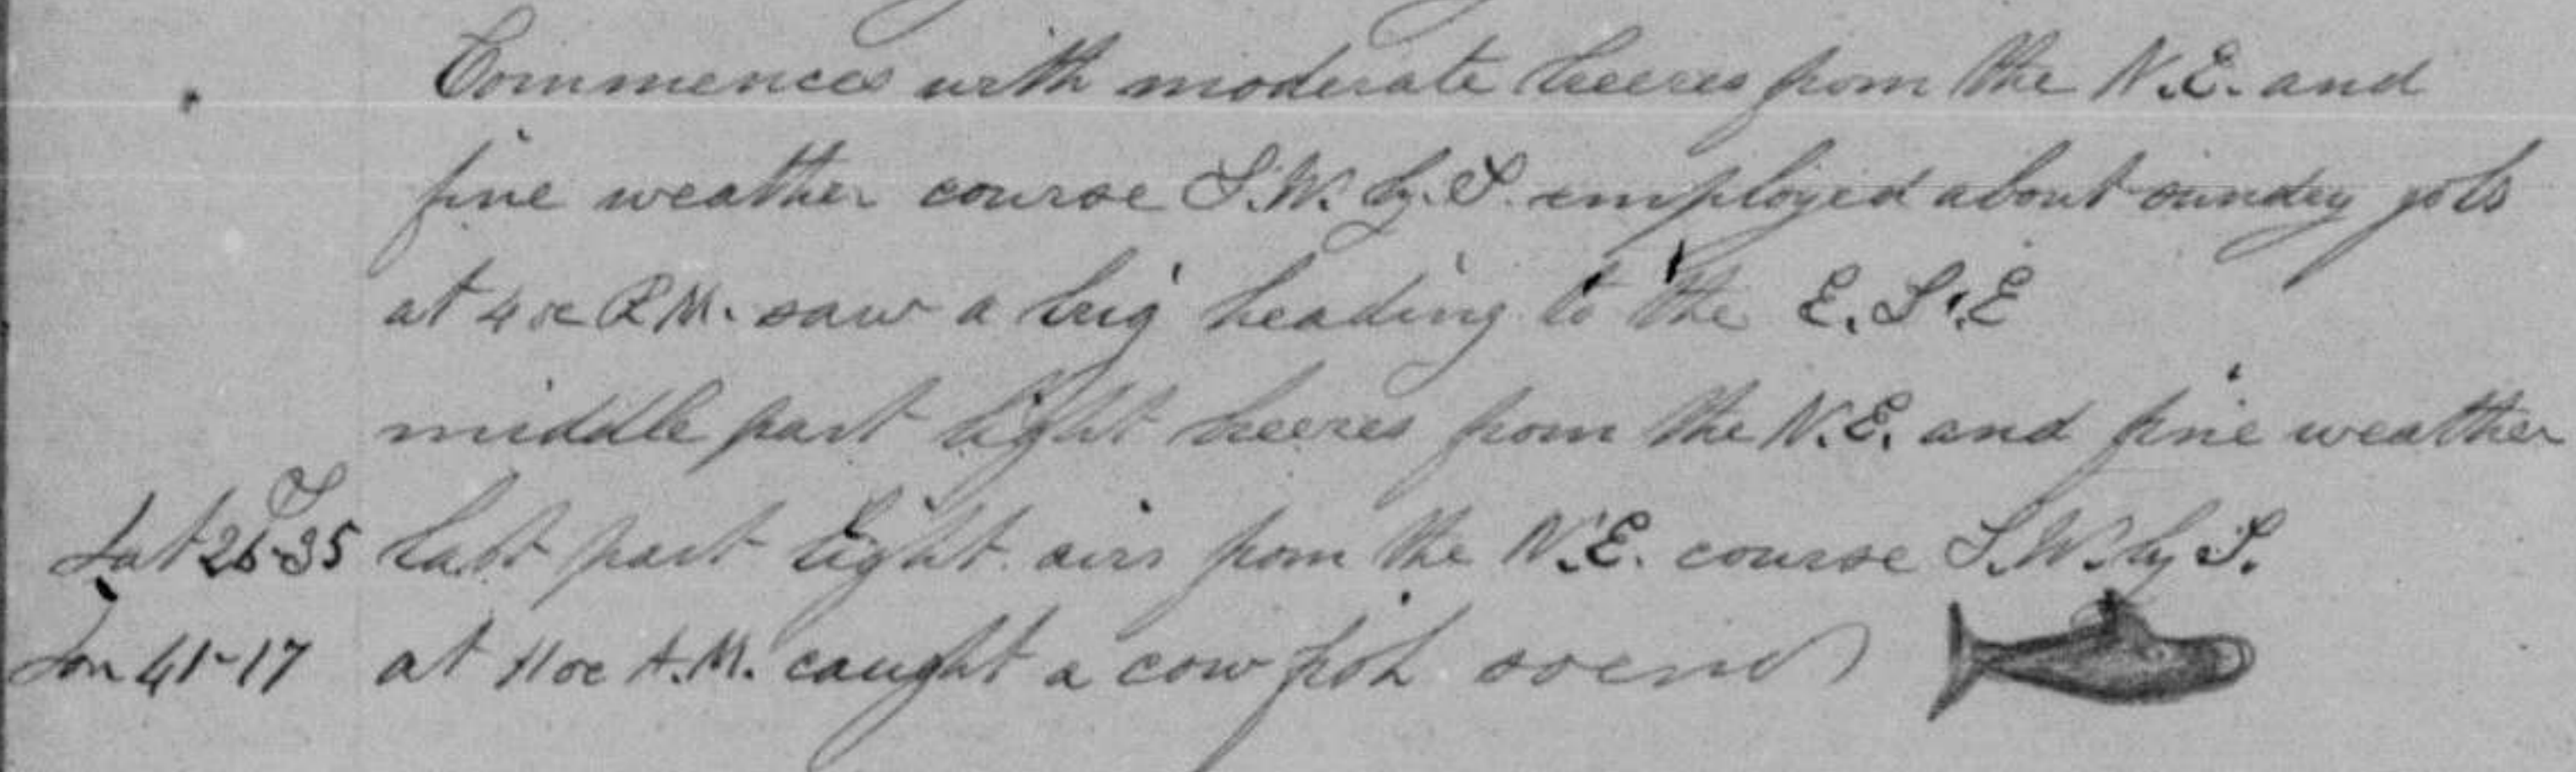 Commences with moderate breezes from the N.E. and
fine weather course S.W. by S. employed about sundry jobs
at 4 oc P.M. saw a brig heading to the E.S.E
middle part light breezes from the N.E. and fine weather
S
Lat 26-35 last part light airs from the N.E. course S.W. by S.
Lon 41-17 at 11 oc A.M. caught a cow fish so ends